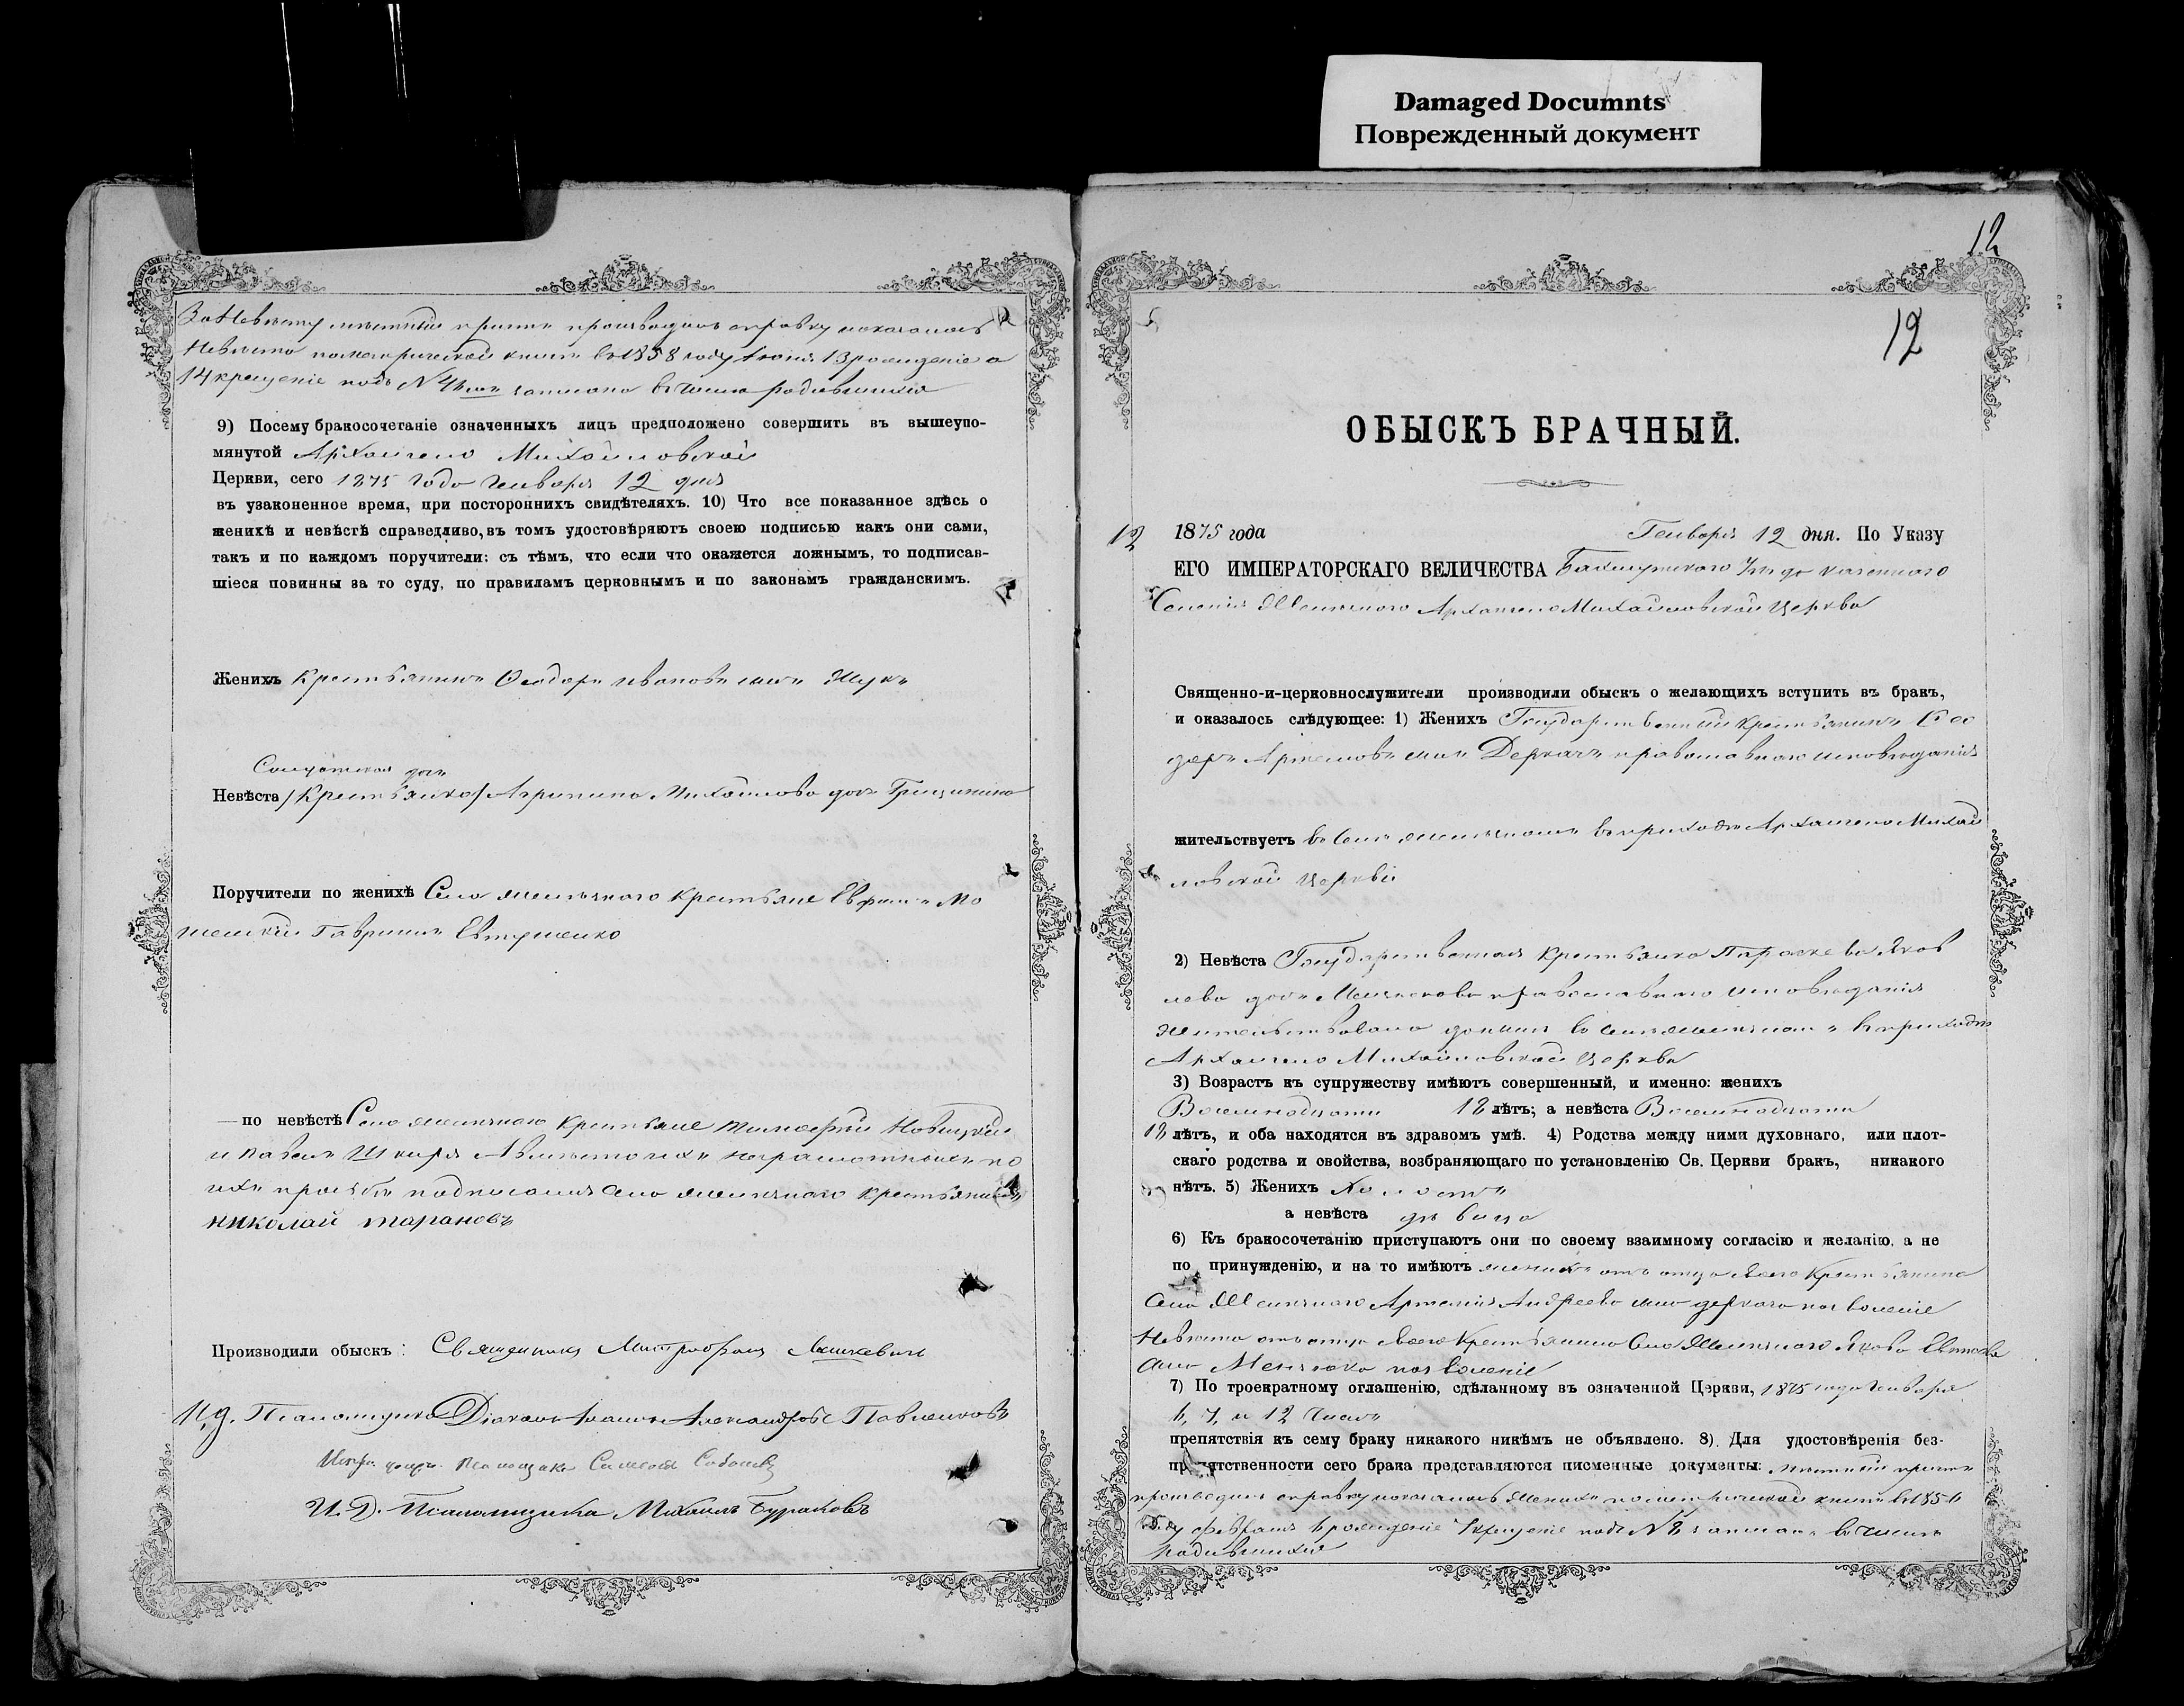 Damaged Documnts
Поврежденный документ
Невѣста по метрической книги въ 1858 году Іюня 13 рожденіе а
14 крещеніе подъ № записана въ число родившихся
9) Посему бракосочетаніе означенныхъ лицъ предположено совершить въ вышеупо-
мянутой Архангело Михайловской
Церкви, сего 1875 года Генваря 12 дня
въ узаконенное время, при постороннихъ свидѣтеляхъ. 10) Что все показанное здѣсь о
женихѣ и невѣстѣ справедливо, въ томъ удостовѣряютъ своею подписью какъ они сами,
такъ и по каждомъ поручители: съ тѣмъ, что если что окажется ложнымъ, то подписав-
шіеся повинны за то суду, по правиламъ церковнымъ и по законамъ гражданскимъ.
Женихъ Крестьянинъ Ѳеодоръ Ивановъ сынъ Жукъ
Солдатская дочь
Невѣста /Крестьянка/ Агрипина Михайлова дочь Грищинина
Поручители по женихѣ Села Желѣзнаго Крестьяне Ефимъ Мо
Гавриилъ Евтушенко
— по невѣстѣ Села Желѣзнаго Крестьяне Тимофей Новицкій
и Павелъ Шкиря А вмѣсто ихъ неграмотныхъ по
ихъ прозьбѣ подписался села Желѣзнаго крестьянинъ
николай тарановъ
Производили обыскъ: Священникъ Митрофанъ
И.д. Псаломщика Діаконъ Іоаннъ Александровъ Павленковъ
И. Д. Псаломщика Михаилъ Бураковъ
12
12
ОБЫСКЪ БРАЧНЫЙ.
12 1875 года Генваря 12 дня. По Указу
ЕГО ИМПЕРАТОРСКАГО ВЕЛИЧЕСТВА Бахмутскаго уѣзда казеннаго
Селенія Желѣзнаго Архангело Михайловской Церкви
Священно-и-церковнослужители производили обыскъ о желающихъ вступить въ бракъ,
и оказалось слѣдующее: 1) Женихъ Государственный Крестьянинъ Ѳео
доръ Артемовъ сынъ Деркачъ православнаго исповѣданія
жительствуетъ въ селѣ Желѣзномъ въ приходѣ Архангело Михай
ловской Церкви
2) Невѣста Государственная Крестьянка Параскева Яков
лева дочь православнаго исповѣданія
жительствовала донынѣ въ селѣ Желѣзномъ въ приходѣ
Архангело Михайловской Церкви
3) Возрастъ къ супружеству имѣютъ совершенный, и именно: женихъ
Восемнадцати 18 лѣтъ; а невѣста Восемнадцати
18 лѣтъ, и оба находятся въ здравомъ умѣ. 4) Родства между ними духовнаго, или плот-
скаго родства и свойства, возбраняющаго по установленію Св. Церкви бракъ, никакого
нѣтъ. 5) Женихъ Холостъ
а невѣста дѣвица
6) Къ бракосочетанію приступаютъ они по своему взаимному согласію и желанію, а не
по принужденію, и на то имѣютъ женихъ отъ отца своего Крестьянина
села Желѣзнаго Артемія Андреева сына Деркача позволеніе
Невѣста отъ отца своего Крестьянина села Желѣзнаго Якова
сына позволеніе
7) По троекратному оглашенію, сдѣланному въ означенной Церкви, 1875 года Генваря
6, 7, и 12 чиселъ
препятствія къ сему браку никакого никѣмъ не объявлено. 8). Для удостовѣренія без-
препятственности сего брака представляются писменные документы: мѣстный причтъ
производилъ справку показалось Женихъ по метрической книги въ
году февраля рожденіе крещеніе подъ № 8 записанъ въ число
родившихся